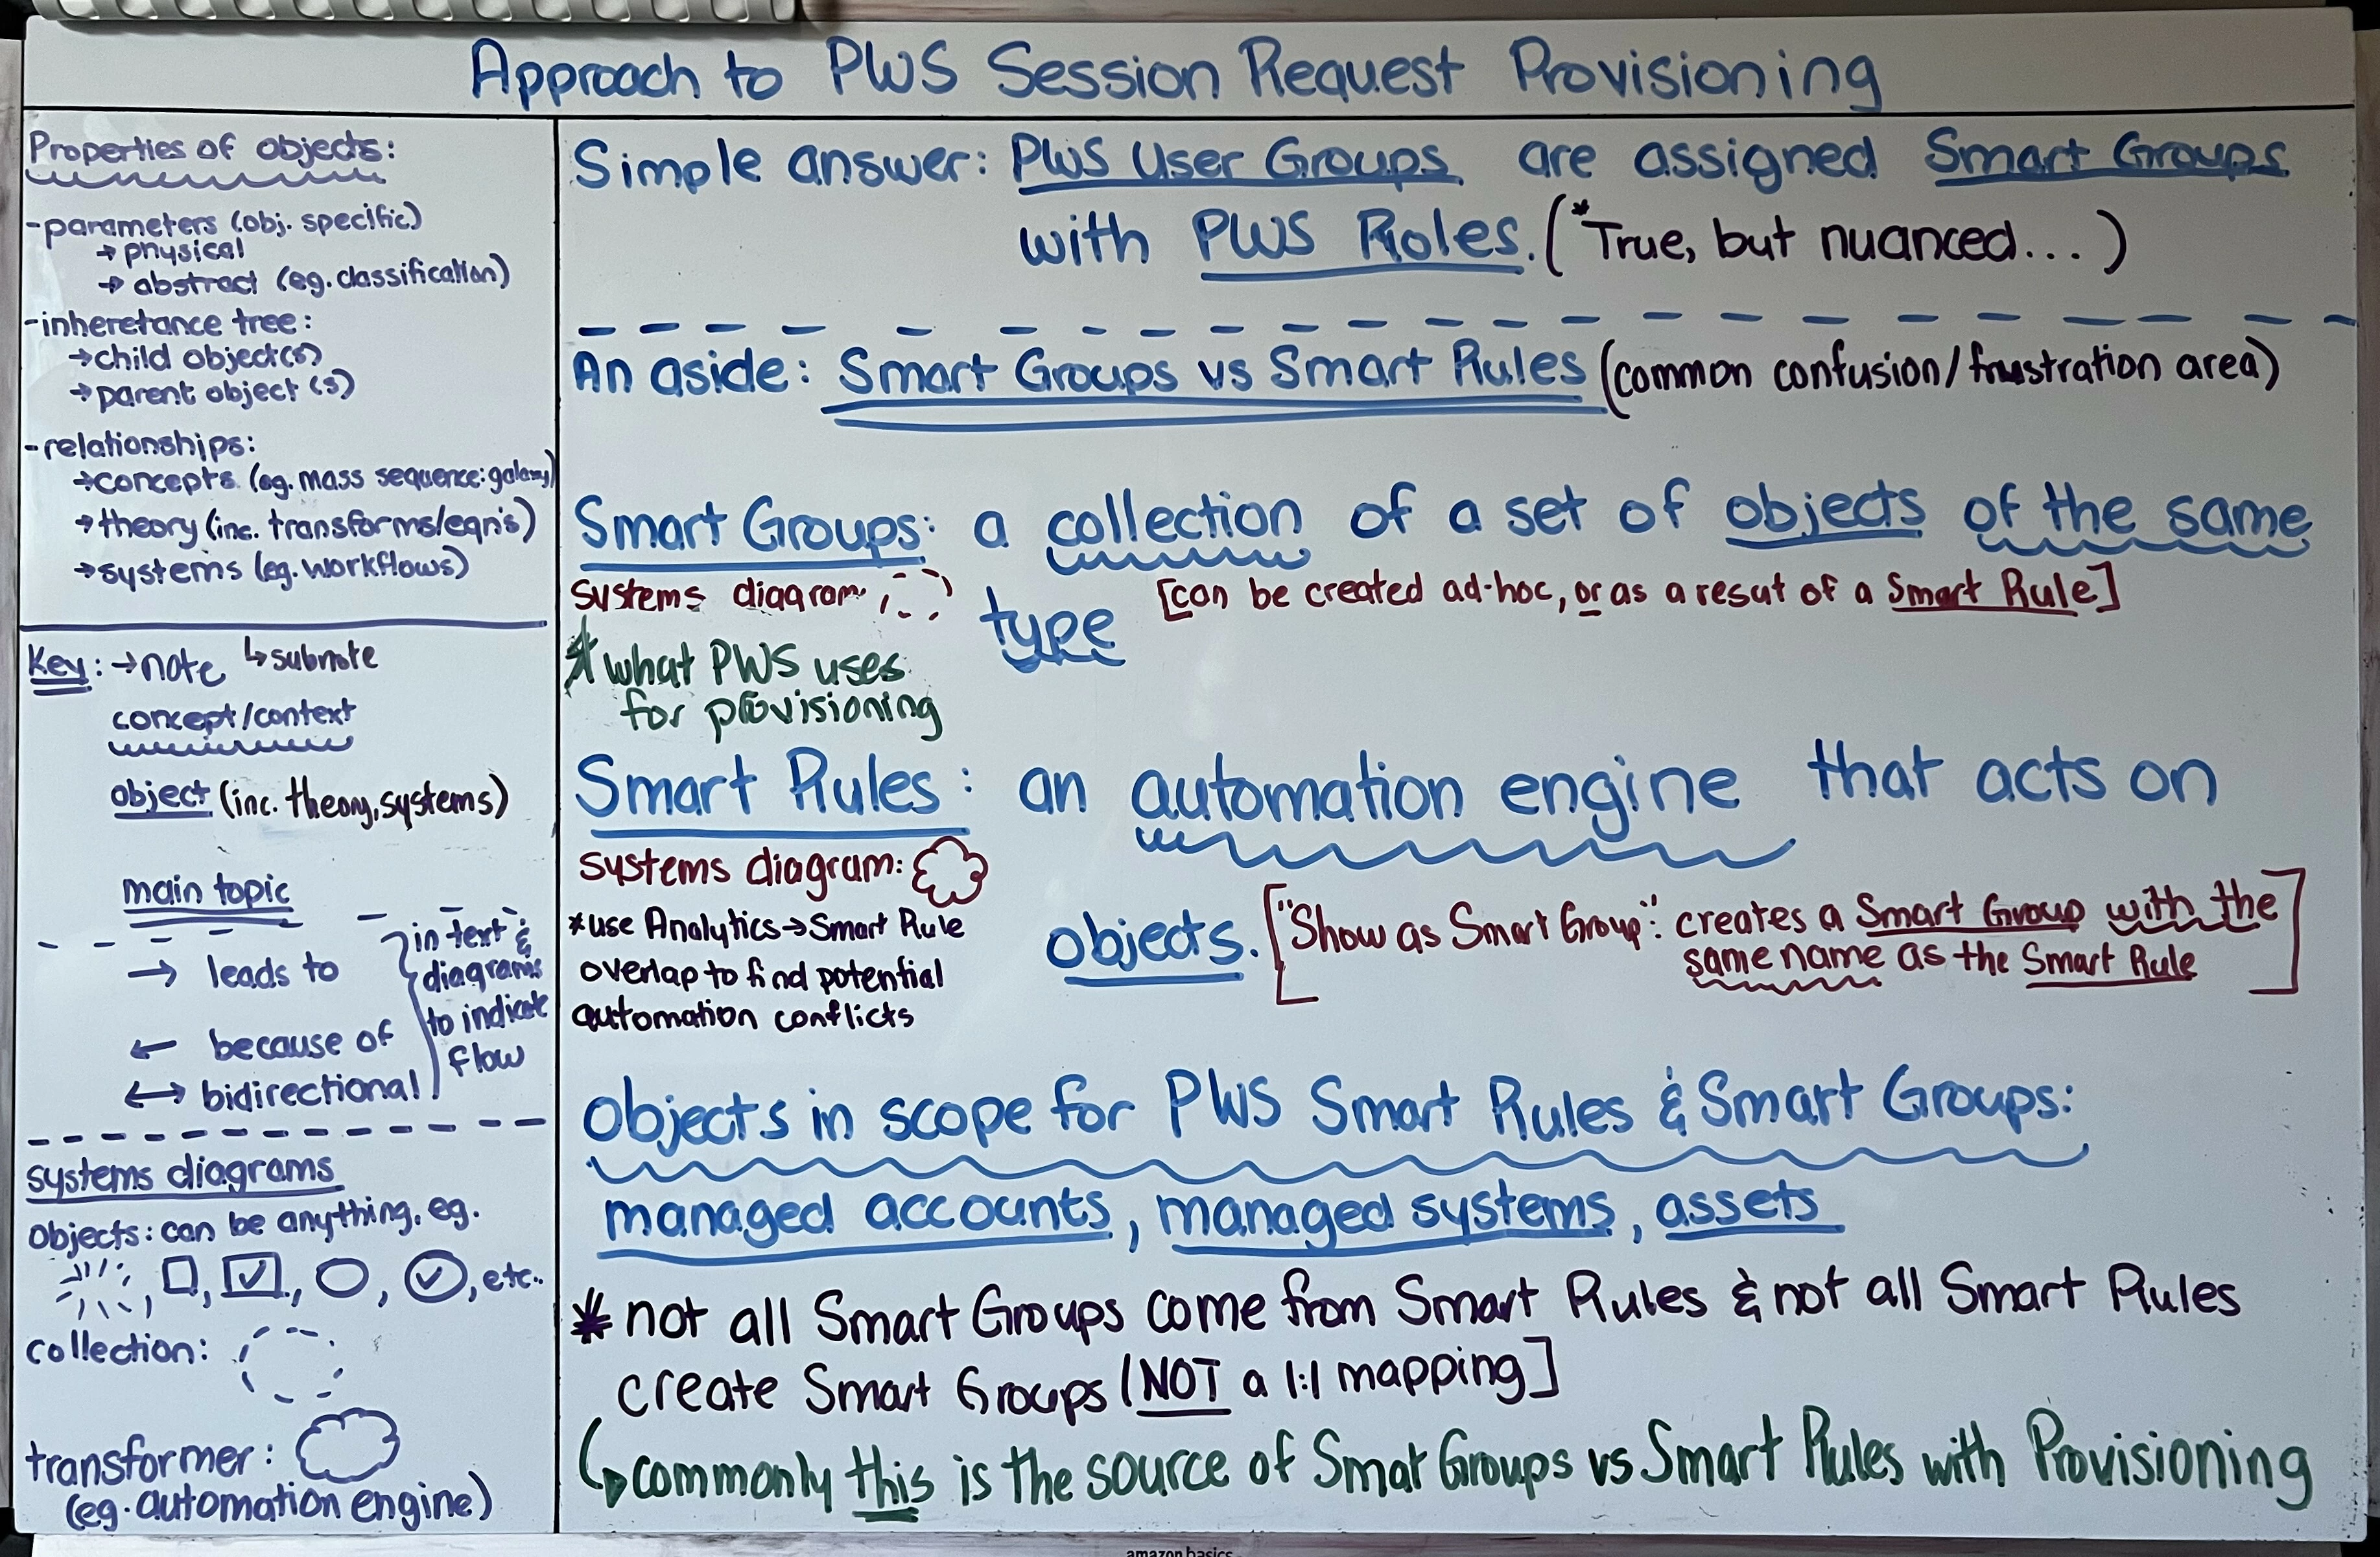 Approach to PWS Session Request Provisioning
Properties of objects:
-parameters (obj. specific)
→ physical
→ abstract (eg. classification)
-inheretance tree:
→child object(s)
→parent object (s)
-relationships:
→concepts (eg. mass sequence: galaxy)
→theory (inc. transforms/eqn's)
→systems (eg. workflows)
Key: →note ↳subnote
concept/context
object (inc. theory, systems)
main topic
→ leads to
← because of
↔ bidirectional
in text &
diagrams
to indicate
flow
systems diagrams
objects: can be anything, eg.
, , , , , etc..
collection:
transformer:
(eg. automation engine)
Simple answer: PWS User Groups are assigned Smart Groups
with PWS Roles. (*True, but nuanced...)
An aside: Smart Groups vs Smart Rules (common confusion/frustration area)
Smart Groups: a collection of a set of objects of the same
type
systems diagram:
[can be created ad-hoc, or as a resut of a Smart Rule]
* what PWS uses
for provisioning
Smart Rules: an automation engine that acts on
objects.
systems diagram:
*use Analytics→Smart Rule
overlap to find potential
automation conflicts
["Show as Smart Group": creates a Smart Group with the
same name as the Smart Rule]
Objects in scope for PWS Smart Rules & Smart Groups:
managed accounts, managed systems, assets
* not all Smart Groups come from Smart Rules & not all Smart Rules
create Smart Groups (NOT a 1:1 mapping]
↳commonly this is the source of Smat Groups vs Smart Rules with Provisioning
amazon basics